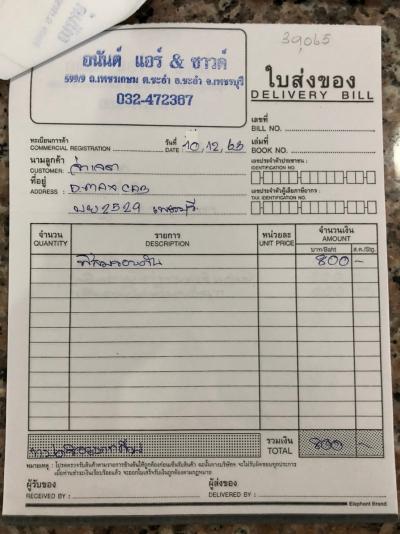 39,065
อนันต์ แอร์ & ซาวด์
599/9 ถ.เพชรเกษม ต.ชะอำ อ.ชะอำ จ.เพชรบุรี
032-472367
ใบส่งของ
DELIVERY BILL
เลขที่
BILL NO.
ทะเบียนการค้า
COMMERCIAL REGISTRATION
วันที่
DATE 10,12,65
เล่มที่
BOOK NO.
นามลูกค้า
CUSTOMER
เลขประจำตัวประชาชน :
IDENTIFICATION NO.
ที่อยู่
ADDRESS D-MAX CAB
เลขประจำตัวผู้เสียภาษีอากร :
TAX IDENTIFICATION NO.
2529 เพชรบุรี
จำนวน
QUANTITY
รายการ
DESCRIPTION
หน่วยละ
UNIT PRICE
จำนวนเงิน
AMOUNT
บาท/Baht ส.ต./Stg.
800 -
รวมเงิน
TOTAL
800 -
หมายเหตุ : โปรดตรวจรับสินค้าตามรายการข้างต้นให้ถูกต้องก่อนเซ็นรับสินค้า
ผู้รับของ
RECEIVED BY :
ผู้ส่งของ
DELIVERED BY :
Elephant Brand